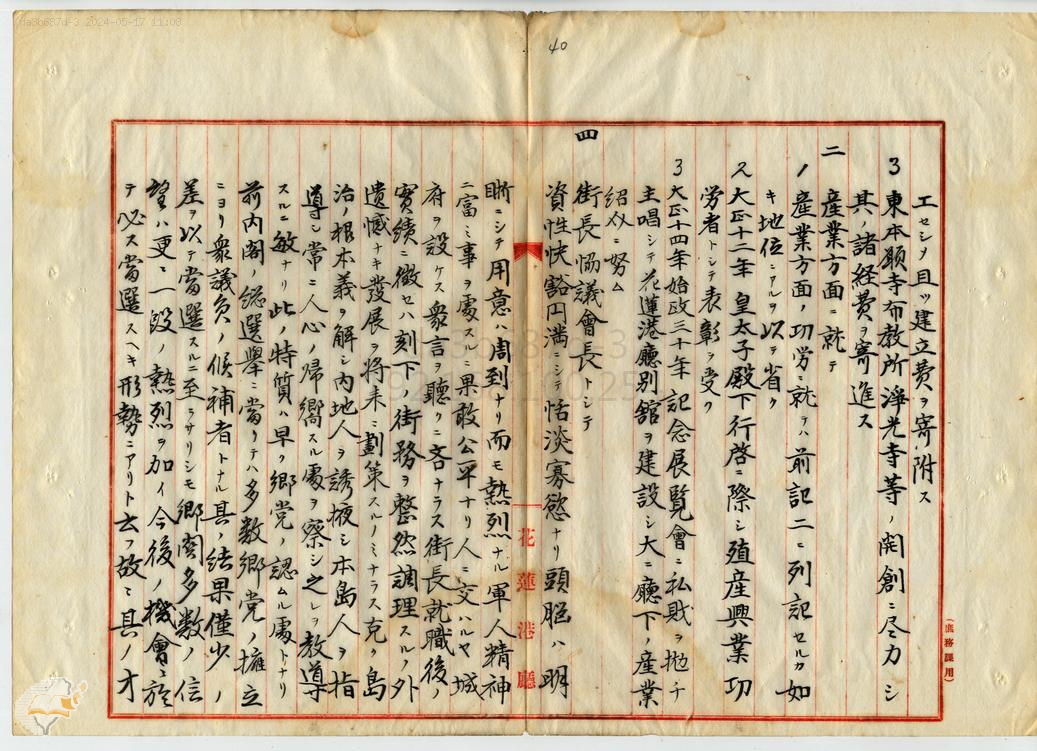 40
エセシメ且ツ建立費ヲ寄附ス
3 東本願寺布教所淨光寺等ノ開創ニ尽力シ
其ノ諸経費ヲ寄進ス
二 産業方面ニ就テ
1 産業方面ノ功労ニ就テハ前記二ニ列記セルカ如
キ地位ニアルヲ以テ省ク
2 大正十二年 皇太子殿下行啓ニ際シ殖産興業功
労者トシテ表彰ヲ受ク
3 大正十四年始政三十年記念展覧會ニ私財ヲ抛チ
主唱シテ花蓮港廳別舘ヲ建設シ大ニ廳下ノ産業
紹介ニ努ム
四 街長恊議會長トシテ
資性快豁円満ニシテ恬淡寡慾ナリ頭脳ハ明
晰ニシテ用意ハ周到ナリ而モ熱烈ナル軍人精神
ニ富ミ事ヲ處スルニ果敢公平ナリ人ニ交ハルヤ城
府ヲ設ケス衆言ヲ聽クニ吝ナラス街長就職後ノ
實績ニ徴セハ刻下ノ街務ヲ整然調理スルノ外
遺憾ナキ發展ヲ将来ニ劃策スルノミナラス克ク島
治ノ根本義ヲ解シ内地人ヲ誘掖シ本島人ヲ指
導シ常ニ人心ノ帰嚮スル處ヲ察シ之レヲ教導
スルニ敏ナリ此ノ特質ハ早ク郷党ノ認ムル處トナリ
前内閣ノ総選擧ニ當リテハ多数郷党ノ擁立
ニヨリ衆議員ノ候補者トナル其ノ結果僅少ノ
差ヲ以テ當選スルニ至ラサリシモ郷関多数ノ信
望ハ更ニ一段ノ熱烈ヲ加イ今後ノ機會ニ於
テ必ス當選スヘキ形勢ニアリト云フ故ニ其ノ才
花蓮港廳
(庶務課用)